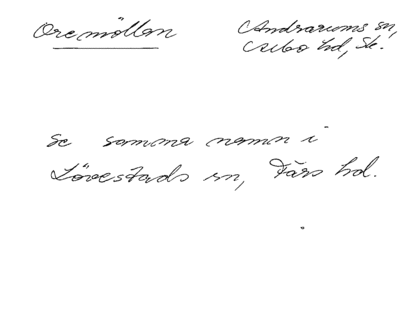 Oremöllan
Andrarums sn,
Albo hd, Sk.
se samma namn i
Lövestads sn, Färs hd.